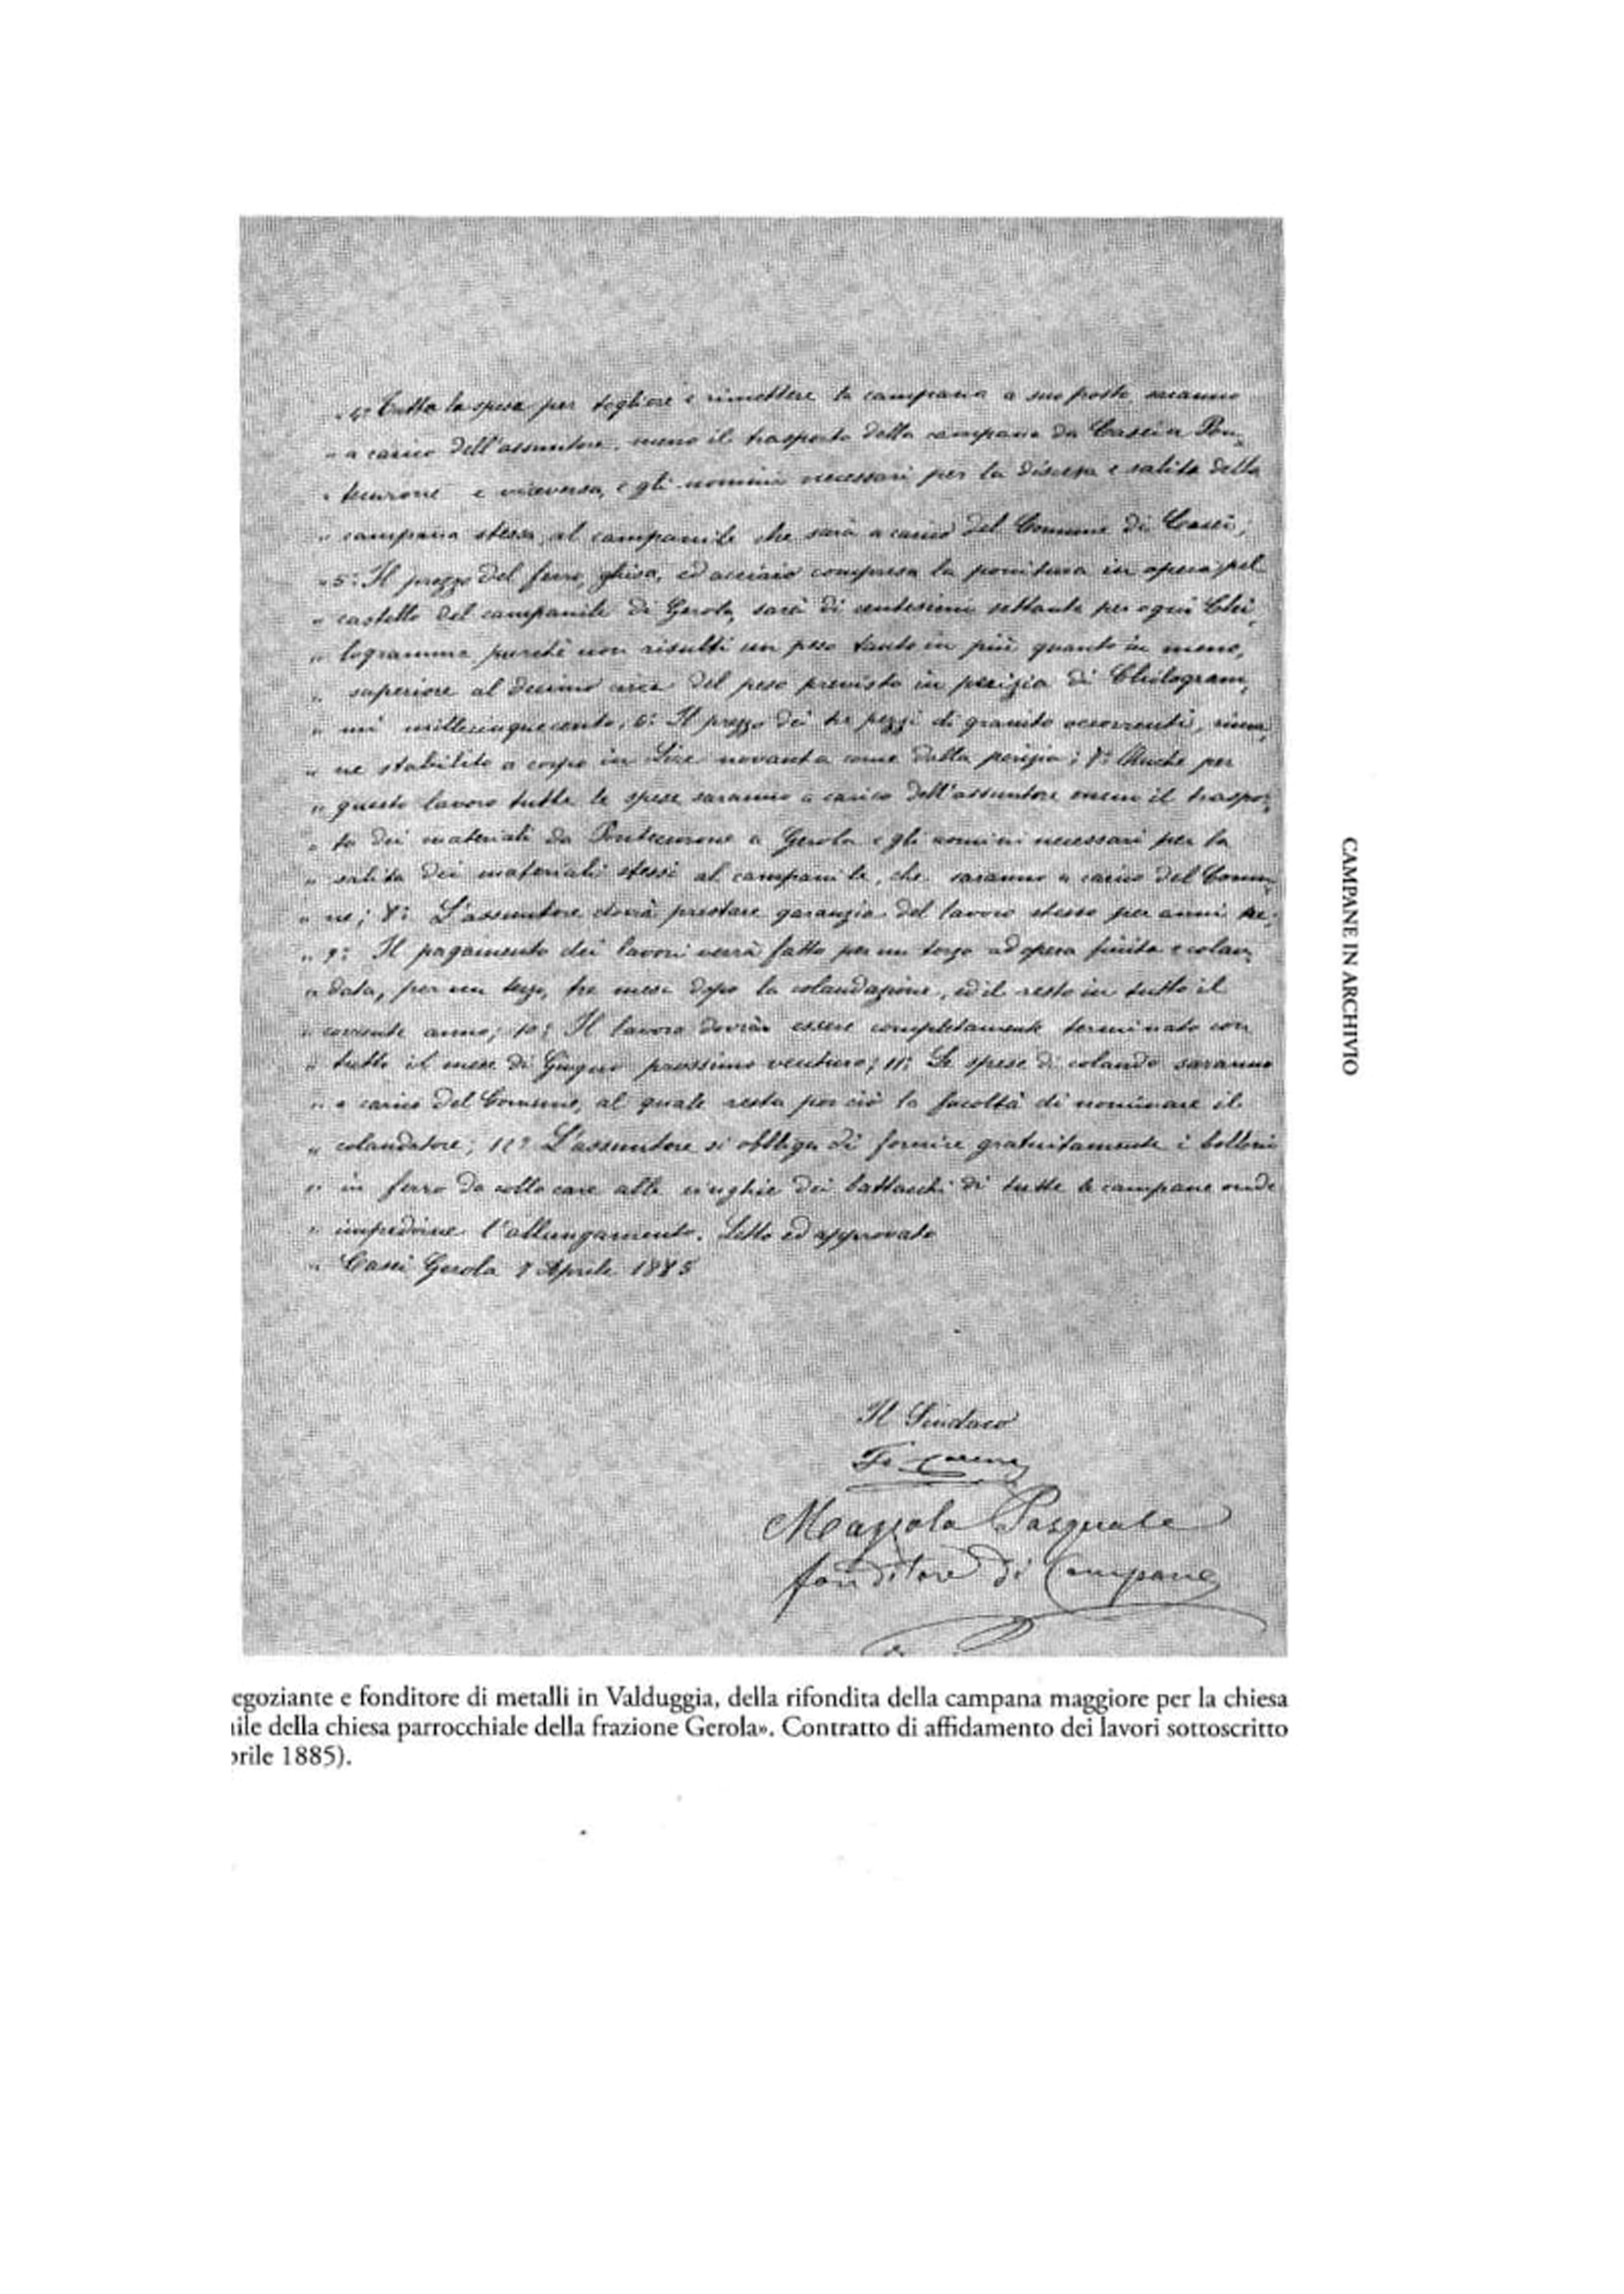 „ 4° Tutte le spese per togliere e rimettere la campana a suo posto, saranno
„ a carico dell'assuntore, meno il trasporto della campana da Casei a Pon„
„ tecurone e viceversa, e gli uomini necessari per la discesa e salita della
„ campana stessa, al campanile che sarà a carico del Comune di Casei;
„ 5° Il prezzo del ferro, ghisa, ed acciaio compresa la ponitura in opera pel
„ castello del campanile di Gerola, sarà di centesimi settanta per ogni Chi„
„ logramma, purchè non risulti un peso tanto in più quanto in meno,
„ superiore al decimo circa del peso previsto in perizia di Chilogram„
„ mi millecinquecento; 6° Il prezzo dei tre pezzi di granito occorrenti, rima„
„ ne stabilito a corpo in Lire novanta come dalla perizia; 7° Anche per
„ questo lavoro tutte le spese saranno a carico dell'assuntore meno il traspor„
„ to dei materiali da Pontecurone a Gerola e gli uomini necessari per la
„ salita dei materiali stessi al campanile, che saranno a carico del Comu„
„ ne; 8° L'assuntore dovrà prestare garanzia del lavoro stesso per anni tre.
„ 9° Il pagamento dei lavori verrà fatto per un terzo ad opera finita e colau„
„ data, per un terzo, tre mesi dopo la colaudazione, ed il resto in tutto il
„ corrente anno; 10° Il lavoro dovrà essere completamente terminato con
„ tutto il mese di Giugno prossimo venturo; 11° Le spese di colaudo saranno
„ a carico del Comune, al quale resta per ciò la facoltà di nominare il
„ colaudatore; 12° L'assuntore si obbliga di fornire gratuitamente i bolloni
„ in ferro da collocare alle cinghie dei battacchi di tutte le campane onde
„ impedirne l'allungamento. Letto ed approvato
„ Casei Gerola 8 Aprile 1885
Il Sindaco
Mazzola Pasquale
fonditore di Campane
egoziante e fonditore di metalli in Valduggia, della rifondita della campana maggiore per la chiesa
ile della chiesa parrocchiale della frazione Gerola». Contratto di affidamento dei lavori sottoscritto
prile 1885).
CAMPANE IN ARCHIVIO